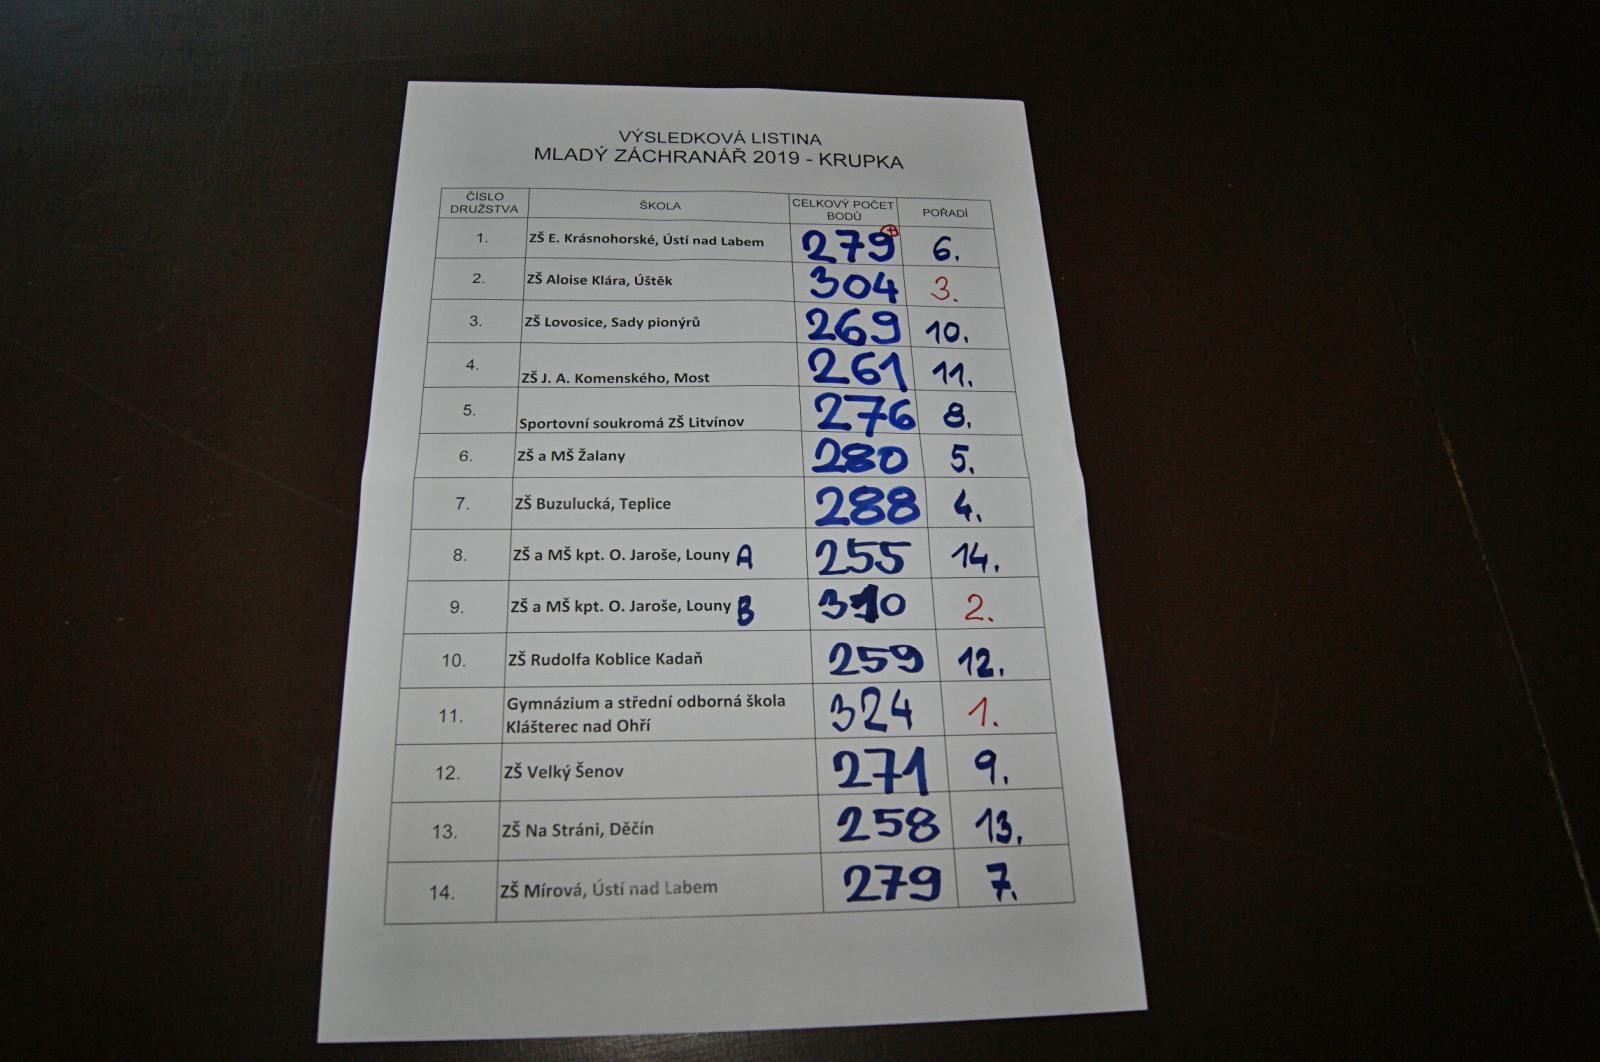 VÝSLEDKOVÁ LISTINA
MLADÝ ZÁCHRANÁŘ 2019 - KRUPKA
ČÍSLO DRUŽSTVA ŠKOLA CELKOVÝ POČET BODŮ POŘADÍ
1. ZŠ E. Krásnohorské, Ústí nad Labem 279+ 6.
2. ZŠ Aloise Klára, Úštěk 304 3.
3. ZŠ Lovosice, Sady pionýrů 269 10.
4. ZŠ J. A. Komenského, Most 261 11.
5. Sportovní soukromá ZŠ Litvínov 276 8.
6. ZŠ a MŠ Žalany 280 5.
7. ZŠ Buzulucká, Teplice 288 4.
8. ZŠ a MŠ kpt. O. Jaroše, Louny A 255 14.
9. ZŠ a MŠ kpt. O. Jaroše, Louny B 310 2.
10. ZŠ Rudolfa Koblice Kadaň 259 12.
11. Gymnázium a střední odborná škola Klášterec nad Ohří 324 1.
12. ZŠ Velký Šenov 271 9.
13. ZŠ Na Stráni, Děčín 258 13.
14. ZŠ Mírová, Ústí nad Labem 279 7.